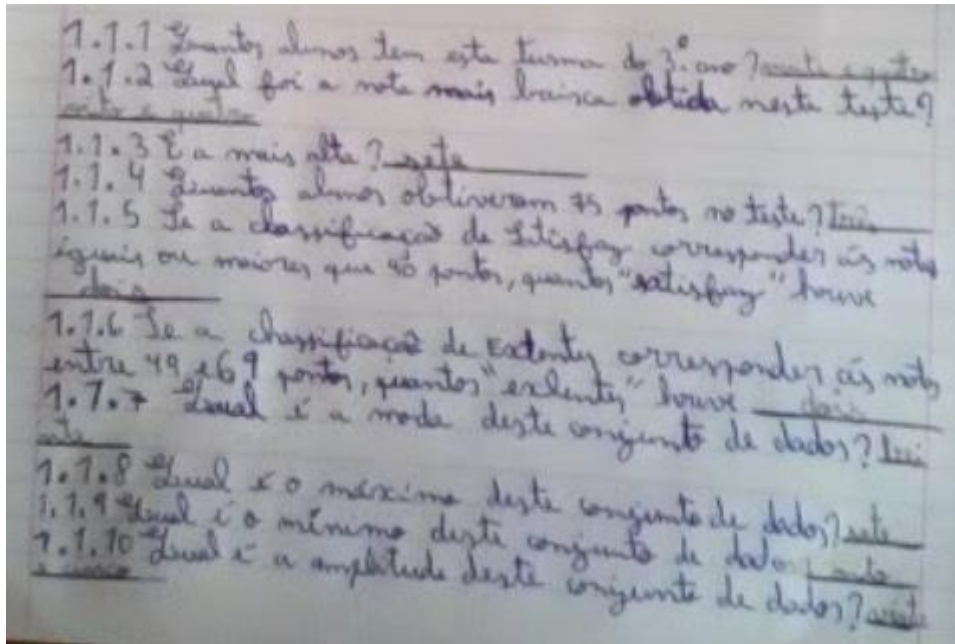 1.1.1 Quantos alunos tem esta turma do 3.º ano?
1.1.2 Qual foi a nota mais baixa obtida neste teste?
oito e quatro
1.1.3 E a mais alta? sete
1.1.4 Quantos alunos obtiveram 75 pontos no teste?
1.1.5 Se a classificação de corresponder ás notas
iguais ou maiores que pontos, quantos "satisfaz" houve
dois
1.1.6 Se a classificação de corresponder ás notas
entre 49 e 69 pontos, quantos houve dois
1.1.7 Qual é a moda deste conjunto de dados?
1.1.8 Qual é o máximo deste conjunto de dados? sete
1.1.9 Qual é o mínimo deste conjunto de
1.1.10 Qual é a amplitude deste conjunto de dados?